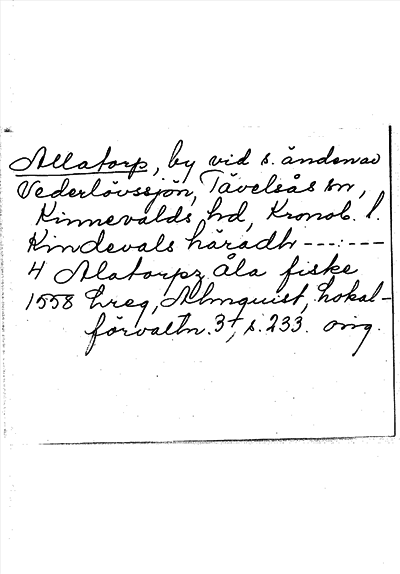 Allatorp, by vid s. ändan av
Vederlövssjön, Tävelsås sn,
Kinnevalds hd, Kronob. l.
Kindevals häradh ---:---
4 Alatorpz Åla fiske
1558 hreg, Almquist, Lokal-
förvaltn. 3†, s. 233. orig.